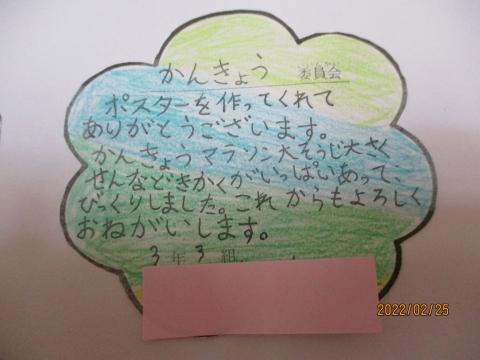 かんきょう 委員会
ポスターを作ってくれて
ありがとうございます。
かんきょうマラソン大そうじ大さく
せんなどきかくがいっぱいあって、
びっくりしました。これからもよろしく
おねがいします。
3年3組
2022/02/25